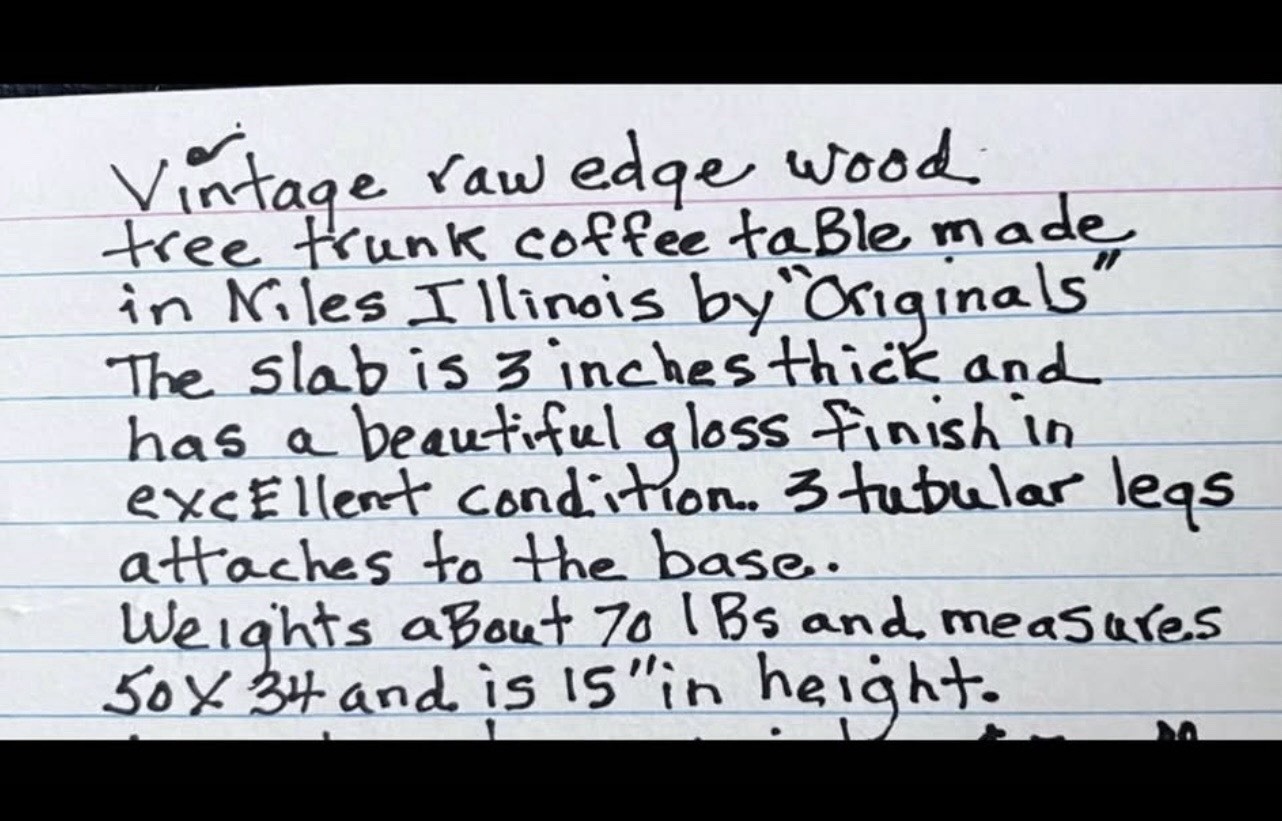 Vintage raw edge wood
tree trunk coffee taBle made
in Niles Illinois by "Originals"
The slab is 3 inches thick and
has a beautiful gloss finish in
excEllent condition.. 3 tubular legs
attaches to the base.
Weights aBout 70 lBs and measures
50X 34 and is 15" in height.